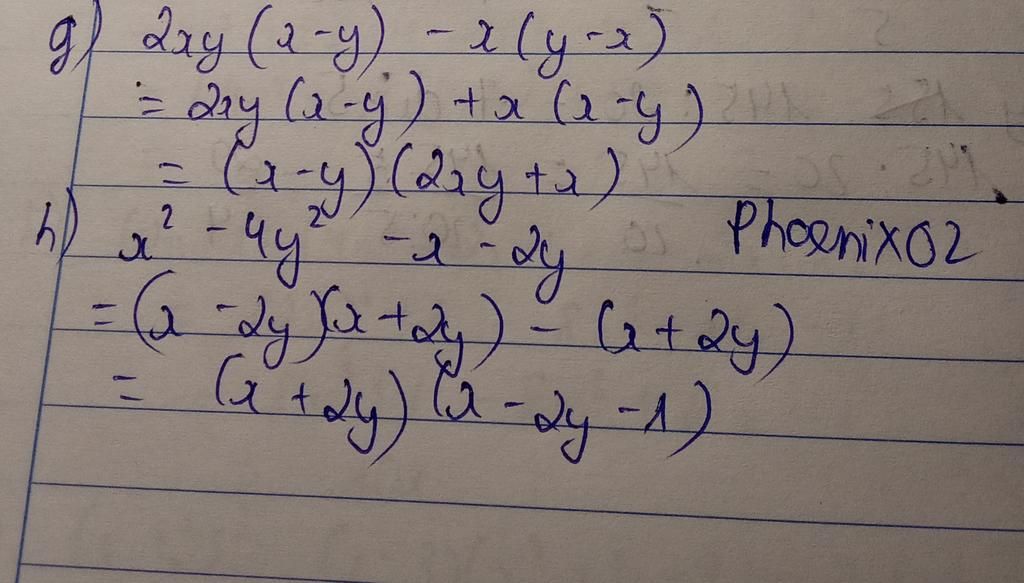 g) 2xy (x-y) - x (y-x)
= 2xy (x-y) + x (x-y)
= (x-y) (2xy + x)
h) x² - 4y² - x - 2y Phoenix02
= (x - 2y)(x + 2y) - (x + 2y)
= (x + 2y) (x - 2y - 1)